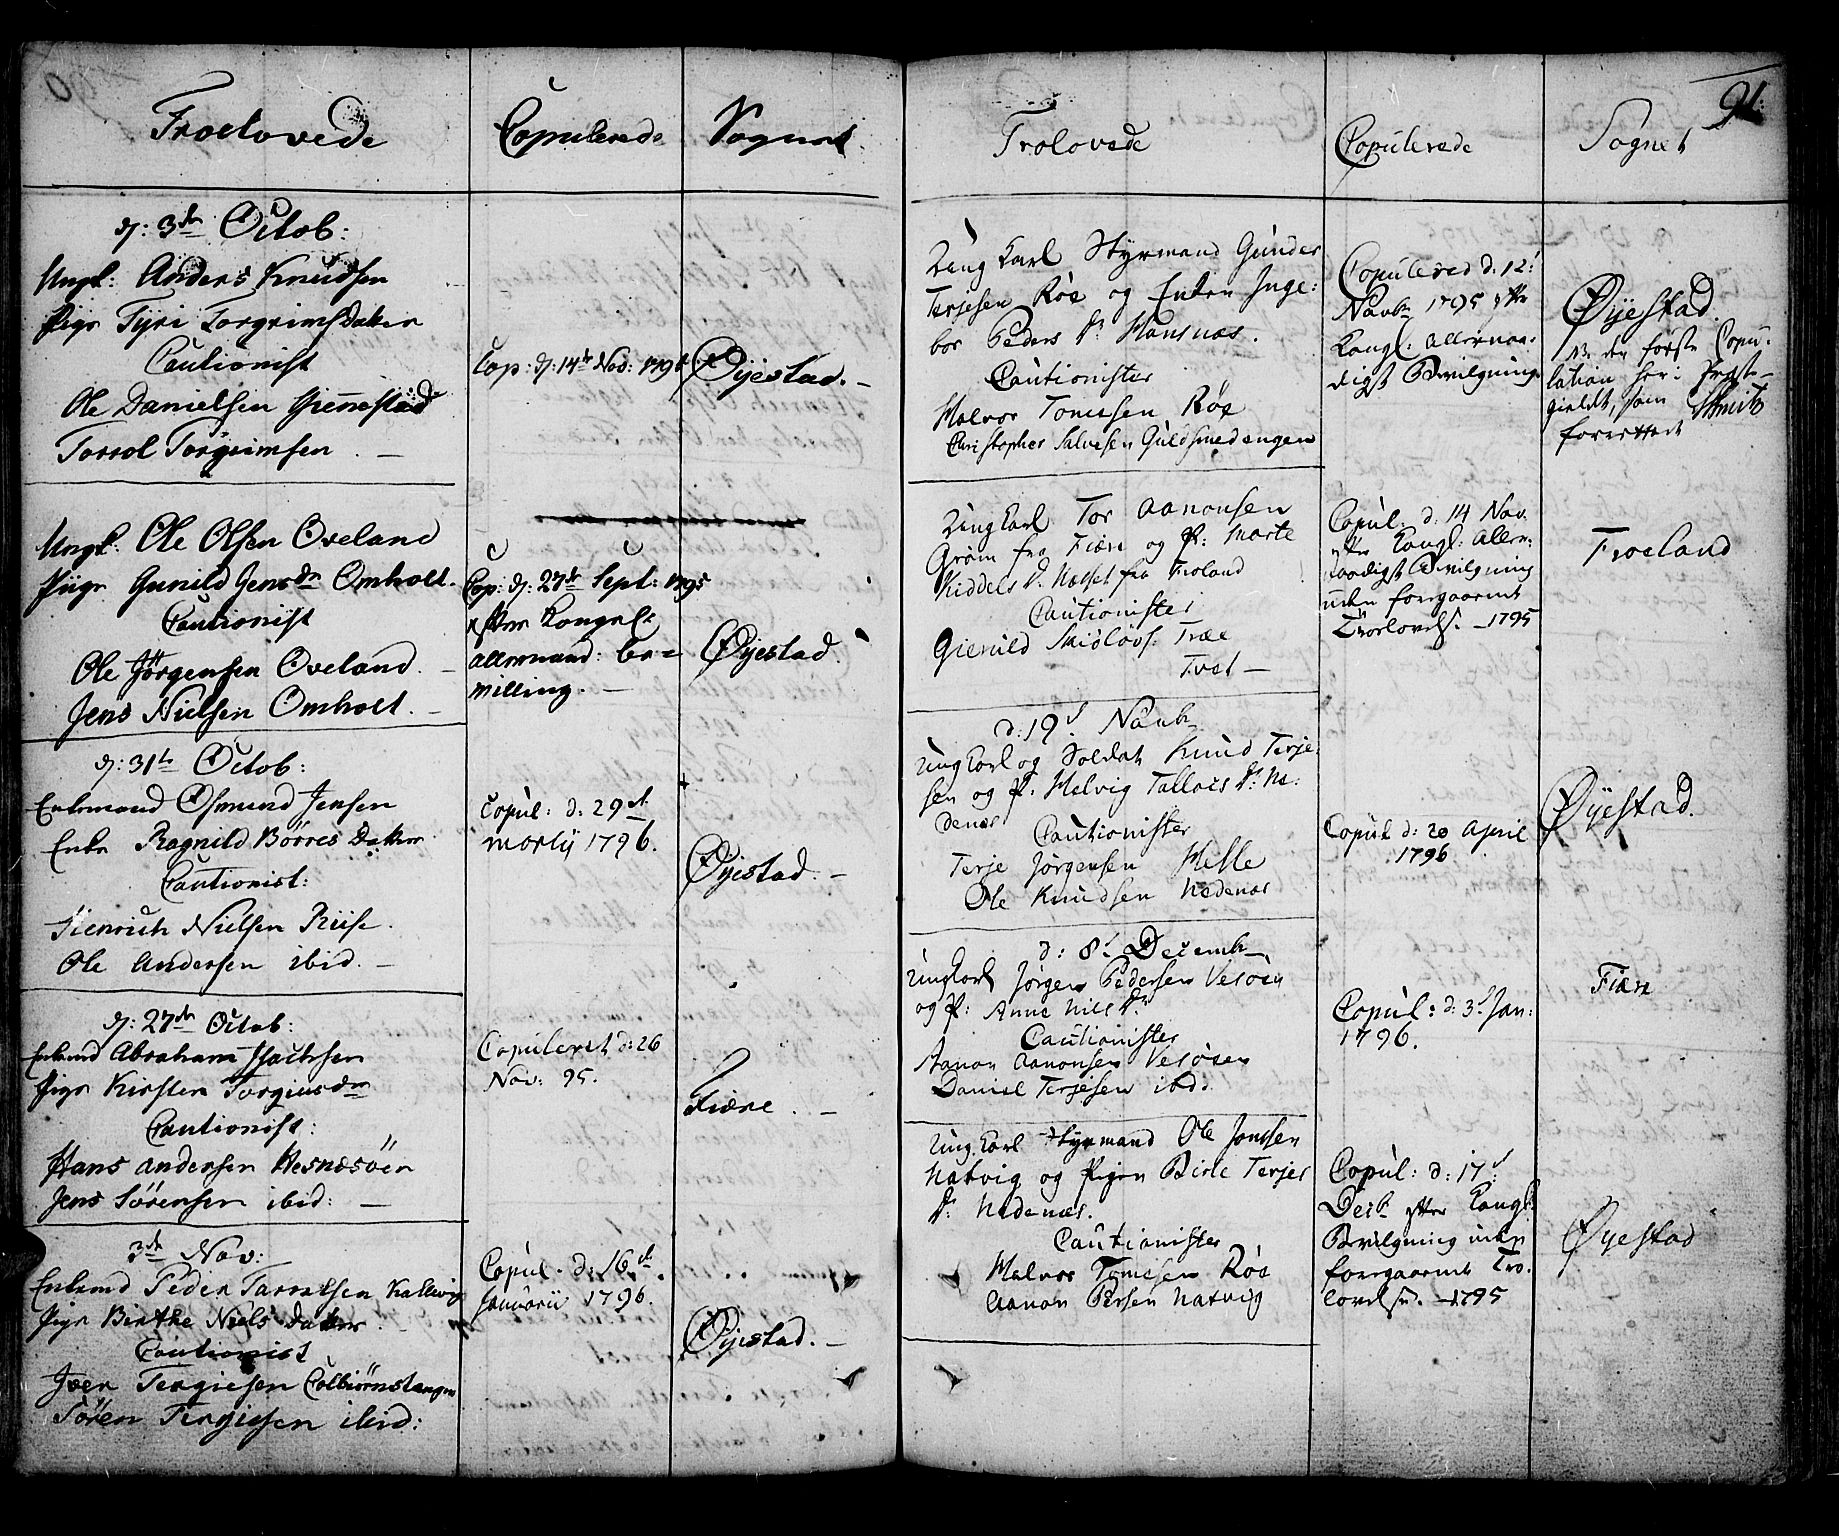 90
Troelovede
Copulerede
Sognet
d: 3de Octob:
Ungk: Anders Knudsen
Pige Tyri Torgrimsdatter
Cautionist
Ole Danielsen Giennestad
Torrol Torgrimsen
Cop: d: 14de Nov: 1795
Øyestad.
Ungk: Ole Olsen Oveland
Piige Gunild Jensdr Omholt.
Cautionist
Ole Jörgensen Oveland.
Jens Nielsen Omholt.
Cop: d: 27de Sept: 1795
efter Kongelr
allernaad: be=
villing.
Øyestad.
d: 31te Octob:
Enkemand Osmund Jensen
Enke Ragnild Börres Datter
Cautionist:
Henrich Nielsen Riise.
Ole Andersen ibid.
Copul: d: 29de
martij 1796.
Øyestad.
d: 27de Octob:
Enkmd Abraham Isachsen
Pige Kirsten Torgiusdr
Cautionist:
Hans Andersen Hesnæsöen
Jens Sörensen ibid:
Copuleret d: 26
Nov: 95.
Fiære.
3de Nov:
Enkmd Peder Tarraldsen Kallevig
Pige Birthe Niels Datter.
Cautionist
Iver Tergiesen Colbiörnstangen
Sören Tergiesen ibid:
Copul: d: 16de
Januarii 1796.
Øyestad.
91.
Trolovede
Copulerede
Sognet
Ung Karl Styrmand Gunder
Terjesen Røe og Enken Inge:
bor Peders Dr Hansnæs.
Cautionister
Halvor Tomessen Røe
Christopher Salvesen Guldsmedengen
Copulered d: 12:
Novbr 1795 efter
Kongl: allernaa:
digst Bevilgning
Øyestad.
NB den første Copu:
lation her i Præste-
gieldt, som Schmidt
forrettet
Ung Karl Tor Aanonsen
Grøm fra Fiære og P: Marte
Kiddels D. Næsset fra Froland
Cautionister
Gieruld Skidlovs: Træe
Tvet
Copul: d. 14 Nov.
efter Kongl: Aller-
naadigst Bevilgning
uden foregaaende
Troelovelse. 1795
Froeland
d: 19de Novbr
Ung Karl og Soldat Knud Terje:
sen og P. Helvig Tallovs Dr: Ne:
denæs
Cautionister
Terje Jørgensen Helle
Ole Knudsen Nedenæs
Copul d: 20 April
1796
Øyestad.
d: 8de Decembr
Ung Karl Jørgen Pedersen Vesøen
og P: Anne Nils Dr
Cautionister
Aanon Aanonsen Vesøen
Daniel Terjesen ibd.
Copul: d: 3de Jan:
1796.
Fiære
Ung Karl Styrmand Ole Jonssen
Natvig og Pigen Birte Terjes
Dr: Nedenæs.
Cautionister
Halvor Tomessen Røe
Aanon Persen Natvig
Copul: d: 17de
Desbr efter Kongl:
Bevilgning uden
foregaaende Tro:
lovelse. 1795
Øyestad